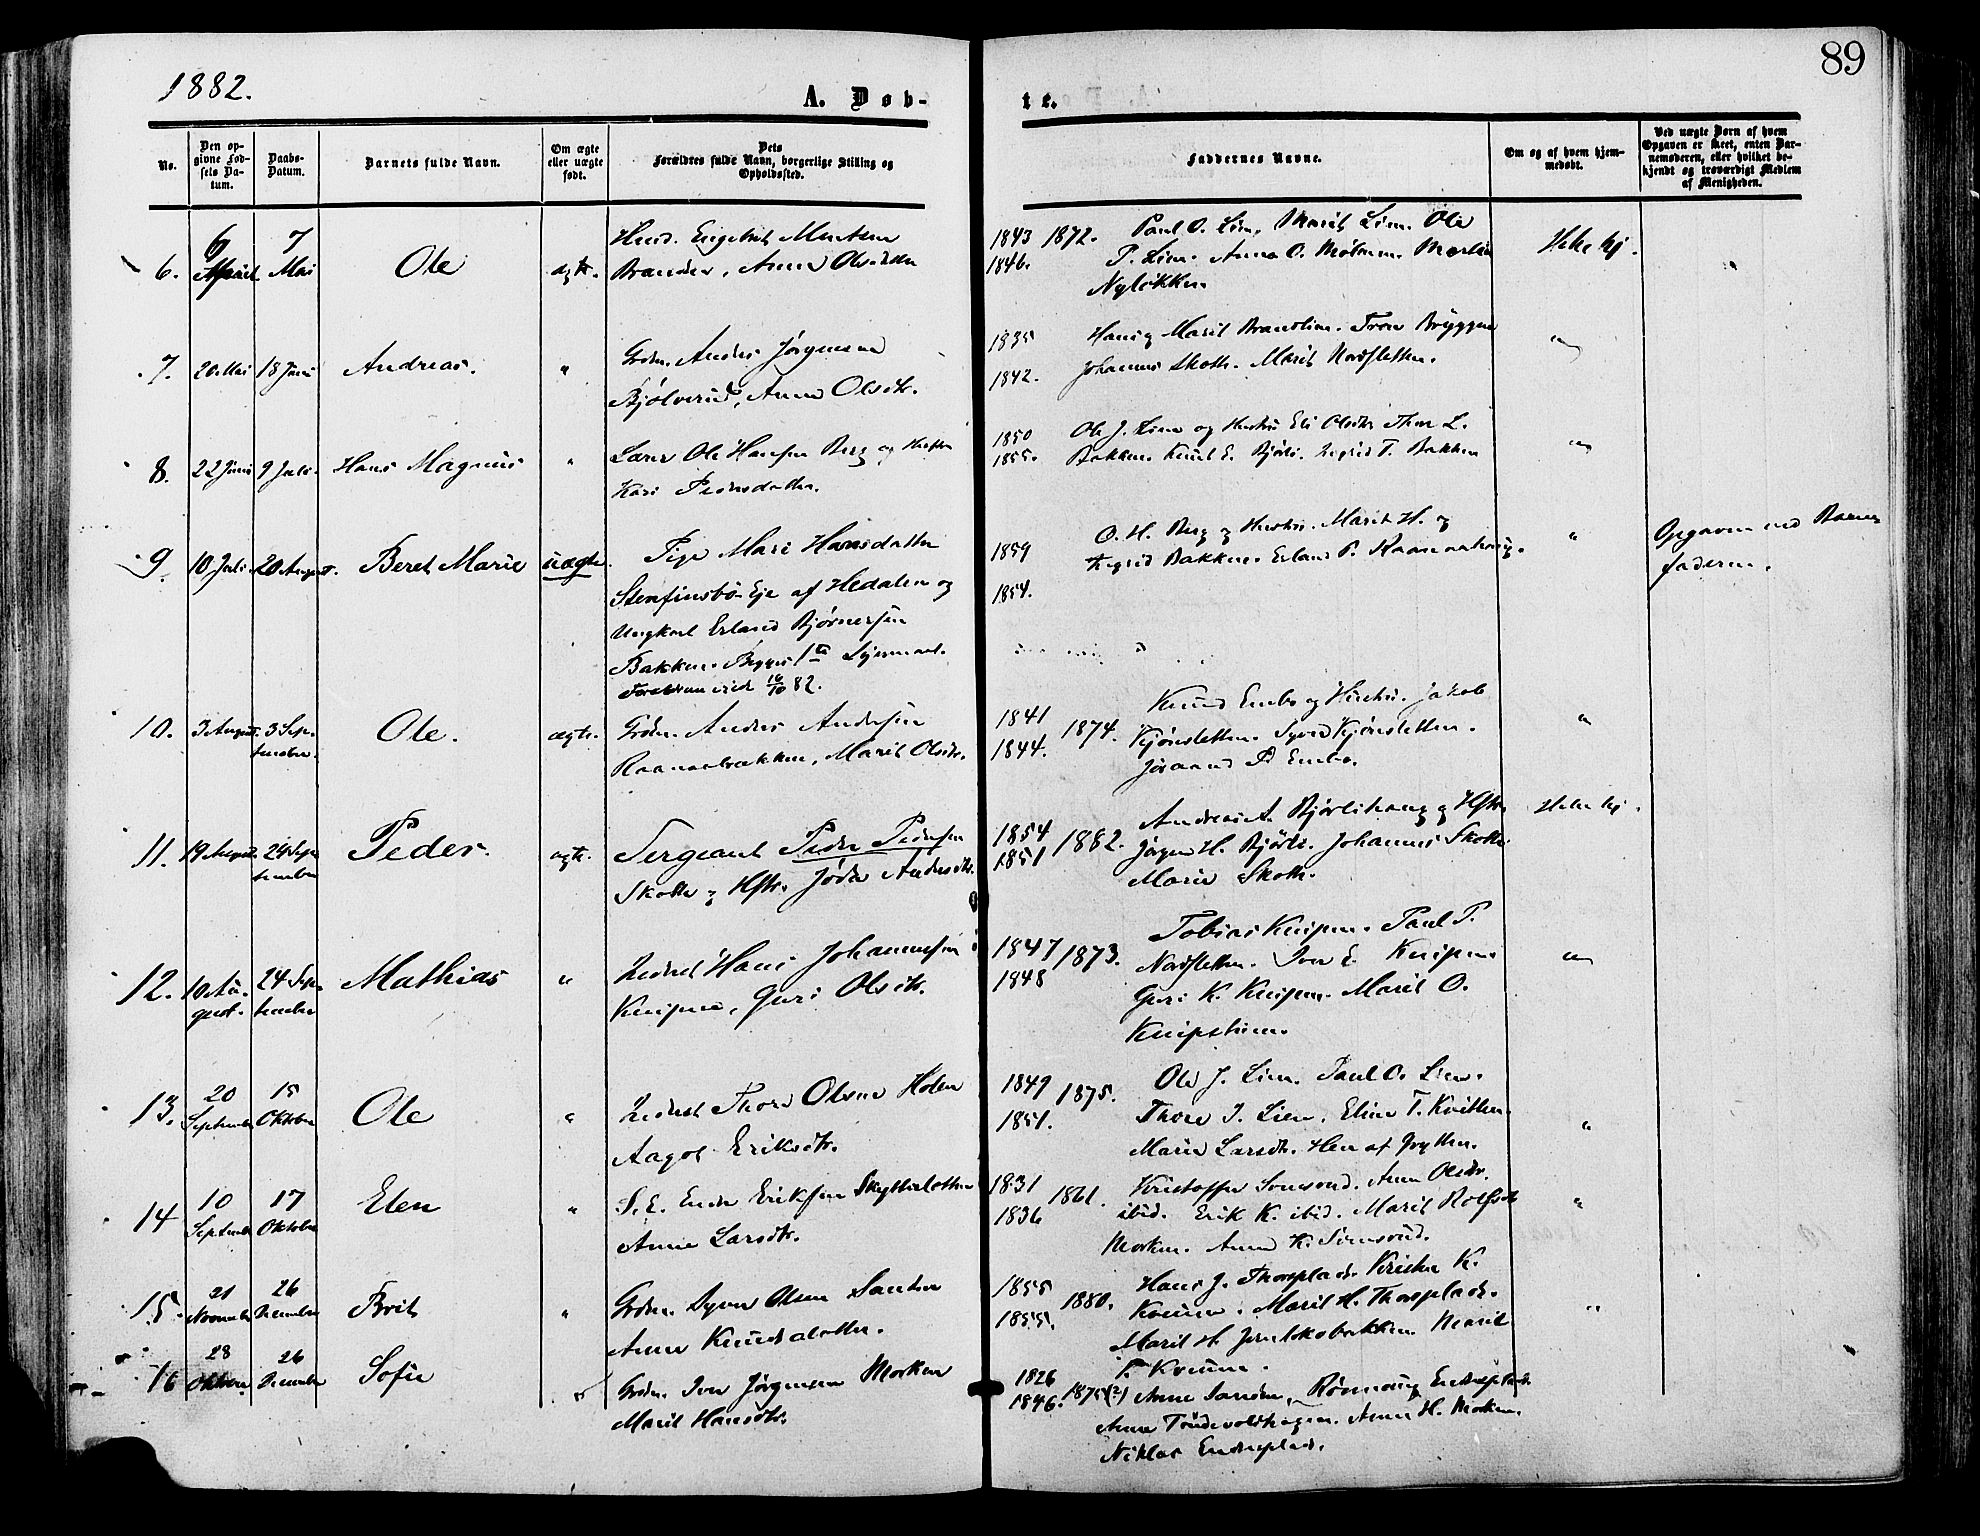 1882.
89
A. Døb-
te.
No.
Den op-
givne Fød-
sels Da-
tum.
Daabs-
Datum.
Barnets fulde Navn.
Om ægte
eller uægte
født.
Dets
Forældres fulde Navn, borgerlige Stilling og
Opholdssted.
Faddernes Navne.
Om og af hvem hjem-
medøbt.
Ved uægte Born af hvem
Opgaven er skeet, enten Bar-
nemoderen, eller hvilket be-
kjendt og troværdigt Medlem
af Menigheden.
6.
6
April
7
Mai
Ole
ægte.
Anne Olsdatter
1843 1872.
1846.
Paul O. Lien, Marit Lien. Ole
P. Lien. Anna O.
Nyløkken.
Ikke hj.
7.
20 Mai
18 Juni
Andreas.
"
Grdm. Anders Jørgensen
Bjølverud, Anne Olsdtr.
1835
1842.
Hans og Marit Brandlien. Tron Bryggen
Johannes Skotte. Marit Nordsletten.
"
8.
22 Juni
9 Juli.
Hans Magnus
"
Lærer Ole Hansen Berg og Hustru
Kari Pedersdatter.
1850
1855.
Ole J. Lien og Hustru Eli Olsdtr Thor L.
Bakken. Knut E. Bjørli. Ingrid T. Bakken
"
9.
10 Juli
20 August.
Beret Marie
uægte.
Pige Mari Hansdatter
Stenfinsbø Eje af Hedalen og
Ungkarl Erland Bjørnersen
Bakken. Begges 1ste Leiermaal.
16/10 82.
1859
1854.
O. H. Berg og Hustru. Marit H. og
Ingrid Bakken. Erland P. Raanaahaug.
"
Opgaven ved Barne-
faderen.
10.
3 August.
3 Sep-
tember.
Ole.
ægte.
Grdm. Anders Andersen
Raanaabakken, Marit Olsdtr.
1841 1874.
1844.
Knud Embo og Hustru. Jakob
Kjønsletten. Syver Kjønsletten.
Jøraand P. Embo.
"
11.
19 August
24 Sep-
tember
Peder.
ægte.
Sergeant Peder Pedersen
Skotte og Hstr. Jøda Andersdtr.
1854 1882.
1851
Andreas A. Bjørlihaug og Hstr
Jørgen H. Bjørli. Johannes Skotte
Marie Skotte.
Ikke hj.
12.
10 Au-
gust.
24 Sep-
tember
Mathias
"
Inderst Hans Johannesen
Kneipen, Guri Olsdtr.
1847 1873.
1848
Tobias Kneipen. Paul P.
Nordsletten. Iver E. Kneipen
Guri K. Kneipen. Marit O.
"
13.
20
September
15
Oktober
Ole
"
Inderst Thore Olsen Holen
Aagot Eriksdtr.
1849 1875.
1851.
Ole J. Lien. Paul O. Lien.
Thore J. Lien. Eline T. Kvitten
Marie Larsdtr.
"
14
10
September
17
Oktober
Elen
"
S.E. Endre Eriksen Skytterlotten
Anne Larsdtr.
1831 1861.
1836
Kristoffer Sonsrud. Anne Olsdtr.
ibid. Erik K. ibid. Marit Rolfsdtr
Morken. Anne K.
"
15.
21
November
26
December
Brit
"
Grdm. Syver Olsen Sanden
Anne Knudsdatter.
1855 1880.
1855.
Hans J. Thorsplads. Kristen K.
Kvenne. Marit H. Thorsplads.
Marit H. Marit
P. Kvenne.
"
16
28
Oktober
26
December
Sofie
"
Grdm. Iver Jørgensen Morken
Marit Hansdtr.
1826
1846. 1875(?)
Anne Sanden, Rønnaug Endreplads.
Anne Anne H. Morken.
Niklas Endreplads.